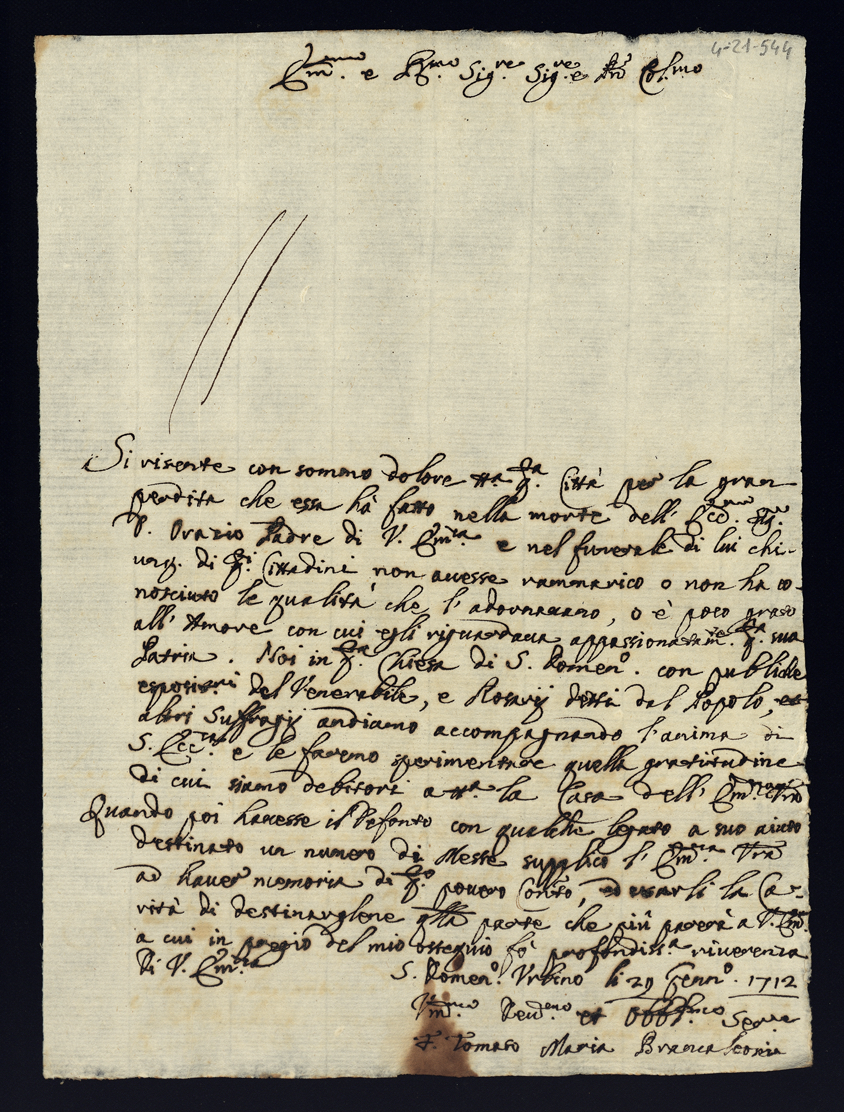 4-21-544
Em.mo e R.mo Sig.re Sig.re e Pñ Col.mo
Si risente con sommo dolore tta q.a Città per la gran
perdita che essa hà fatto nella morte dell' Ecc.mo Sig.
D. Orazio Padre di V. Em.za e nel funerale di lui chi-
unq. di q.i Cittadini non avesse rammarico o non ha co-
nosciuto le qualità che l'adornavano, o è poco grato
all' Amore con cui egli riguardava appassionatam.te q.a sua
Patria. Noi in q.a Chiesa di S. Domen.o con publiche
esposiz.ni del Venerabile, e Rosarij detti dal Popolo, et
altri Suffragij andiamo accompagnando l'anima di
S. Ecc.za e le faremo sperimentare quella gratitudine
di cui siamo debitori a tta la Casa dell' Em.za Vrã
Quando poi havesse il Defonto con qualche legato a suo aiuto
destinato un numero di Messe supplico l' Em.za Vrã
ad haver memoria di q.o povero Conv.to, ed usarli la Ca-
rità di destinarglene qlla parte che più parerà a V. Em.za
a cui in pregio del mio ossequio fò profondiss.a riverenza
Di V. Em.za
S. Domen.o Urbino li 29 Genn.o 1712
Um.mo Dev.mo et Obbl.mo Ser.re
F. Tomaso Maria Brancaleonia